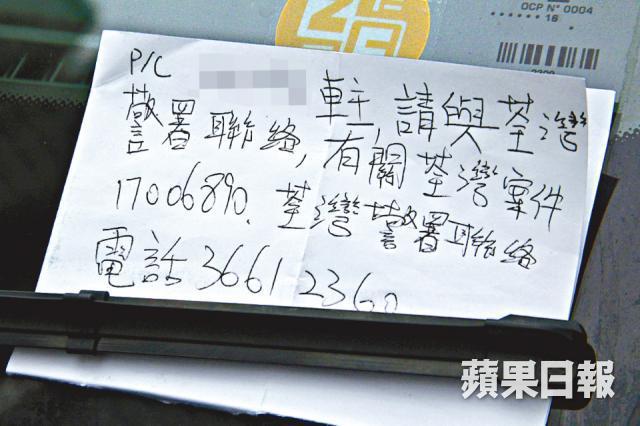 OCP Nº 0004
16
P/C 車主,請與荃灣
警署聯絡,有關荃灣案件
17006890. 荃灣警署聯絡
電話 3661 2360
蘋果日報